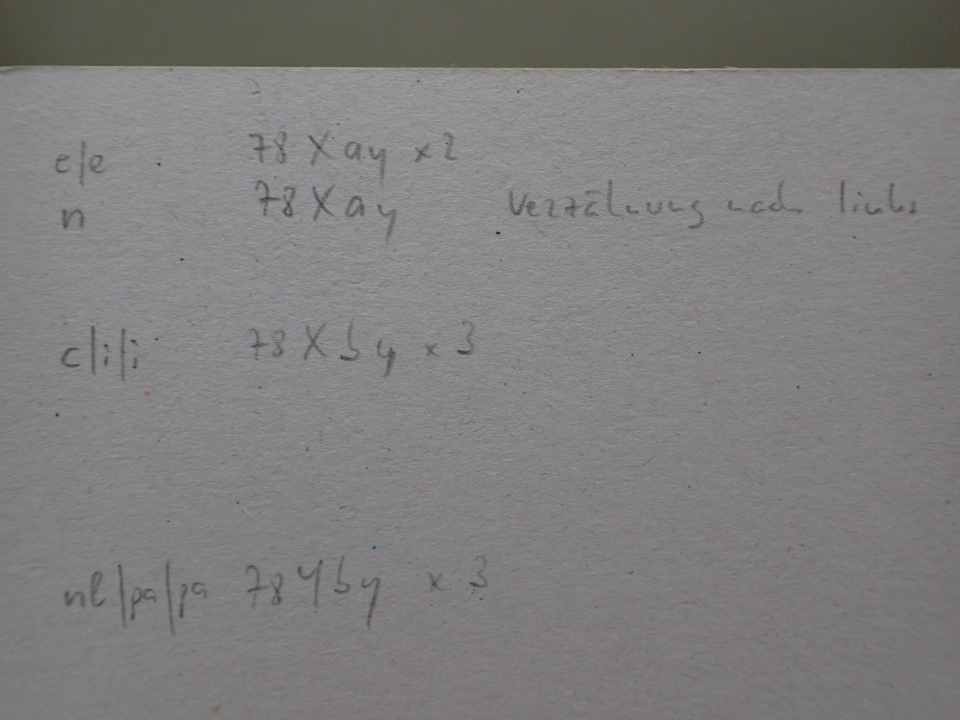 e/e 78 X ay x 2
n 78 X ay Verzähnung nach links
c/i/i 78 X by x 3
nl/pa/pa 78 Y by x 3